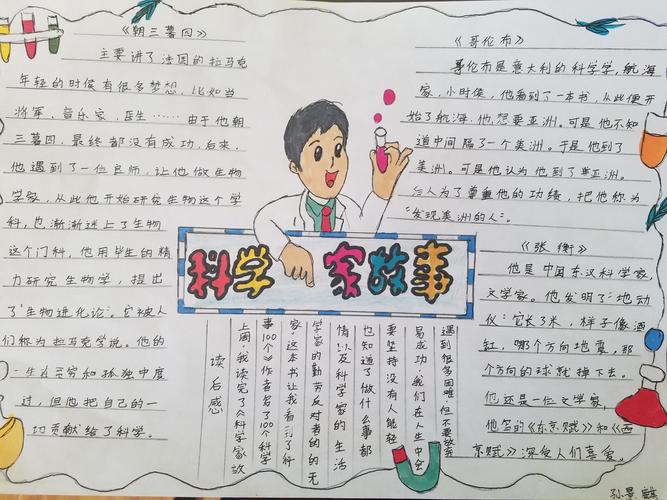 《朝三暮四》
主要讲了法国的拉马克
年轻的时候有很多梦想,比如当
将军,音乐家,医生……由于他朝
三暮四,最终都没有成功,后来,
他遇到了一位良师,让他做生物
学家,从此他开始研究生物这个学
科,也渐渐迷上了生物
这个门科,他用毕生的精
力研究生物学,提出
了"生物进化论",它被人
们称为拉马克学说。他的
一生在贫穷和孤独中度
过,但他把自己的一
切贡献给了科学。
科学家故事
《哥伦布》
哥伦布是意大利的科学学,航海
家,小时侯,他看到了一本书,从此便开
始了航海,他想要亚洲。可是他不知
道中间隔了一个美洲。于是他到了
美洲。可是他认为他到了亚洲。
后人为了尊重他的功绩,把他称为
"发现美洲的人"。
《张衡》
他是中国东汉科学家,
文学家。他发明了地动
仪:它长了米,样子像酒
缸,哪个方向地震,那
个方向的球就掉下去。
他还是一位文学家,
他写的《东京赋》和《西
京赋》深受人们喜爱。
读后感
上周,我读完了《科学家故
事100个》作者名了100个科学
家,这本书让我看到了科
学家的勤劳反对者的的无
情以及科学家的生活
也知道了做什么事都
要坚持没有人能轻
易成功,我们在人生中会
遇到很多困难,但不要放弃
孙景